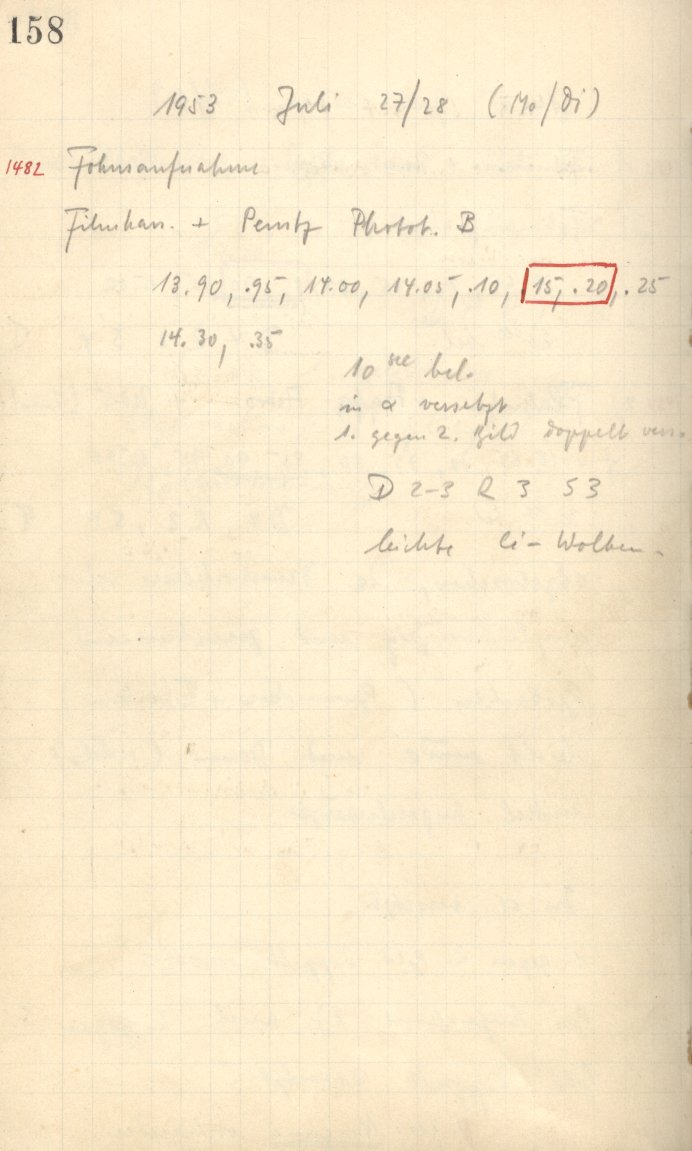 158
1953 Juli 27/28 (Mo/Di)
1482 Fokusaufnahme
Filmkass. + Perutz Photot. B
13.90, .95, 14.00, 14.05, .10, .15, .20, .25
14.30, .35
10 sec bel.
in α versetzt
1. gegen 2. Bild doppelt vers.
D 2-3 R 3 S 3
leichte Ci-Wolken.